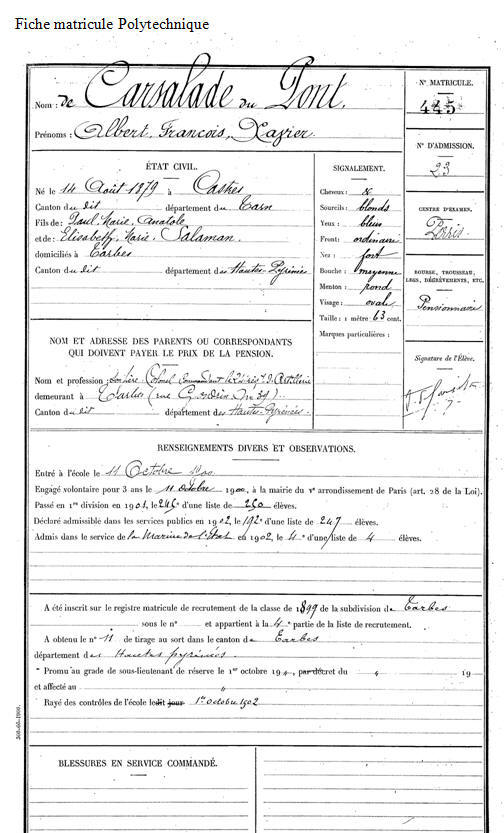 Fiche matricule Polytechnique
Nom : de Carsalade du Pont.
Prénoms : Albert, François, Xavier.
ÉTAT CIVIL.
Né le 14 Août 1879 à Castres
Canton du dit département du Tarn
Fils de : Paul, Marie, Anatole
et de : Elisabeth, Marie, Salaman.
domiciliés à Tarbes
Canton du dit département des Hautes Pyrénées
NOM ET ADRESSE DES PARENTS OU CORRESPONDANTS
QUI DOIVENT PAYER LE PRIX DE LA PENSION.
Nom et profession : son père Colonel Commandant le Régt d'Artillerie
demeurant à Tarbes (rue nº 39)
Canton du dit département des Hautes-Pyrénées.
SIGNALEMENT.
Cheveux : &
Sourcils : blonds
Yeux : bleus
Front : ordinaire
Nez : fort
Bouche : moyenne
Menton : rond
Visage : ovale
Taille : 1 mètre 63 cent.
Marques particulières :
Nº MATRICULE.
445
Nº D'ADMISSION.
23
CENTRE D'EXAMEN.
Paris
BOURSE, TROUSSEAU,
LEGS, DÉGRÈVEMENTS, ETC.
Pensionnaire
Signature de l'Élève.
RENSEIGNEMENTS DIVERS ET OBSERVATIONS.
Entré à l'école le 11 Octobre 1900
Engagé volontaire pour 3 ans le 11 Octobre 1900, à la mairie du Vᵉ arrondissement de Paris (art. 28 de la Loi).
Passé en 1ʳᵉ division en 1901, le 246ᵉ d'une liste de 250 élèves.
Déclaré admissible dans les services publics en 1902, le 192ᵉ d'une liste de 247 élèves.
Admis dans le service de la Marine de l'État en 1902, le 4ᵉ d'une liste de 4 élèves.
A été inscrit sur le registre matricule de recrutement de la classe de 1899 de la subdivision de Tarbes
sous le nº et appartient à la 4ᵉ partie de la liste de recrutement.
A obtenu le nº 11 de tirage au sort dans le canton de Tarbes
département des Hautes pyrénées
Promu au grade de sous-lieutenant de réserve le 1ᵉʳ octobre 19 , par décret du " 19
et affecté au "
Rayé des contrôles de l'école ledit jour 1er octobre 1902
300-65-1900.
BLESSURES EN SERVICE COMMANDÉ.